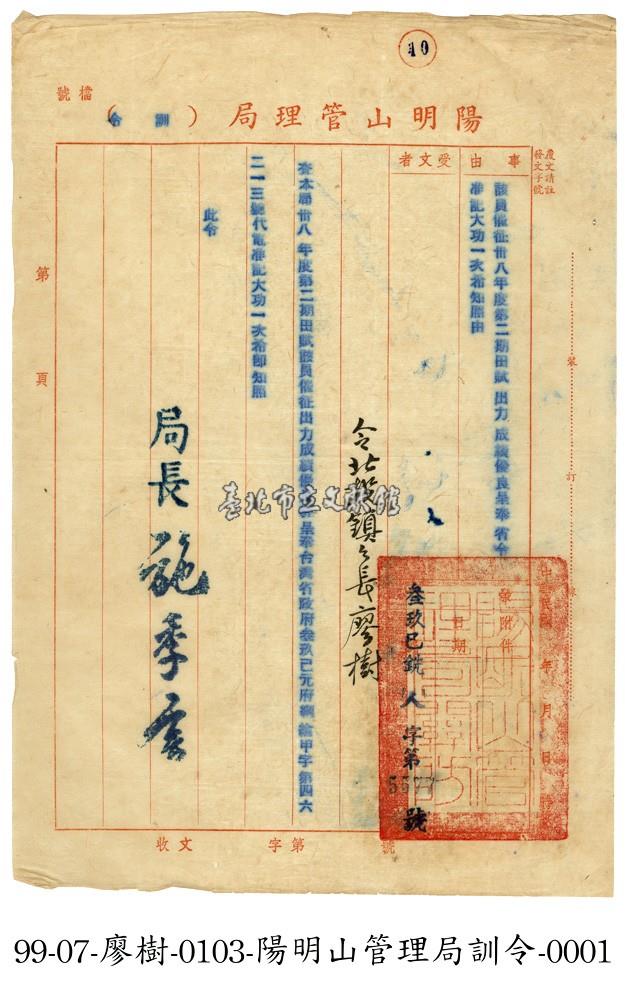 10
檔號
陽明山管理局（訓令）
覆文請註
發文字號
事由
該員催征卅八年度第二期田賦出力成績優良呈奉省令
准記大功一次希知照由
受文者
令北投鎮々長廖樹
查本局卅八年度第二期田賦該員催征出力成績優
呈奉台灣省政府叁玖己元府
綸甲字第四六
二一三號代電准記大功一次希即知照
此令
局長 施季言
中華民國 年 月 日
附件
日期
叁玖巳銑人字第5577號
裝
訂
第 頁
收文 字第 號
臺北市立文獻館
99-07-廖樹-0103-陽明山管理局訓令-0001